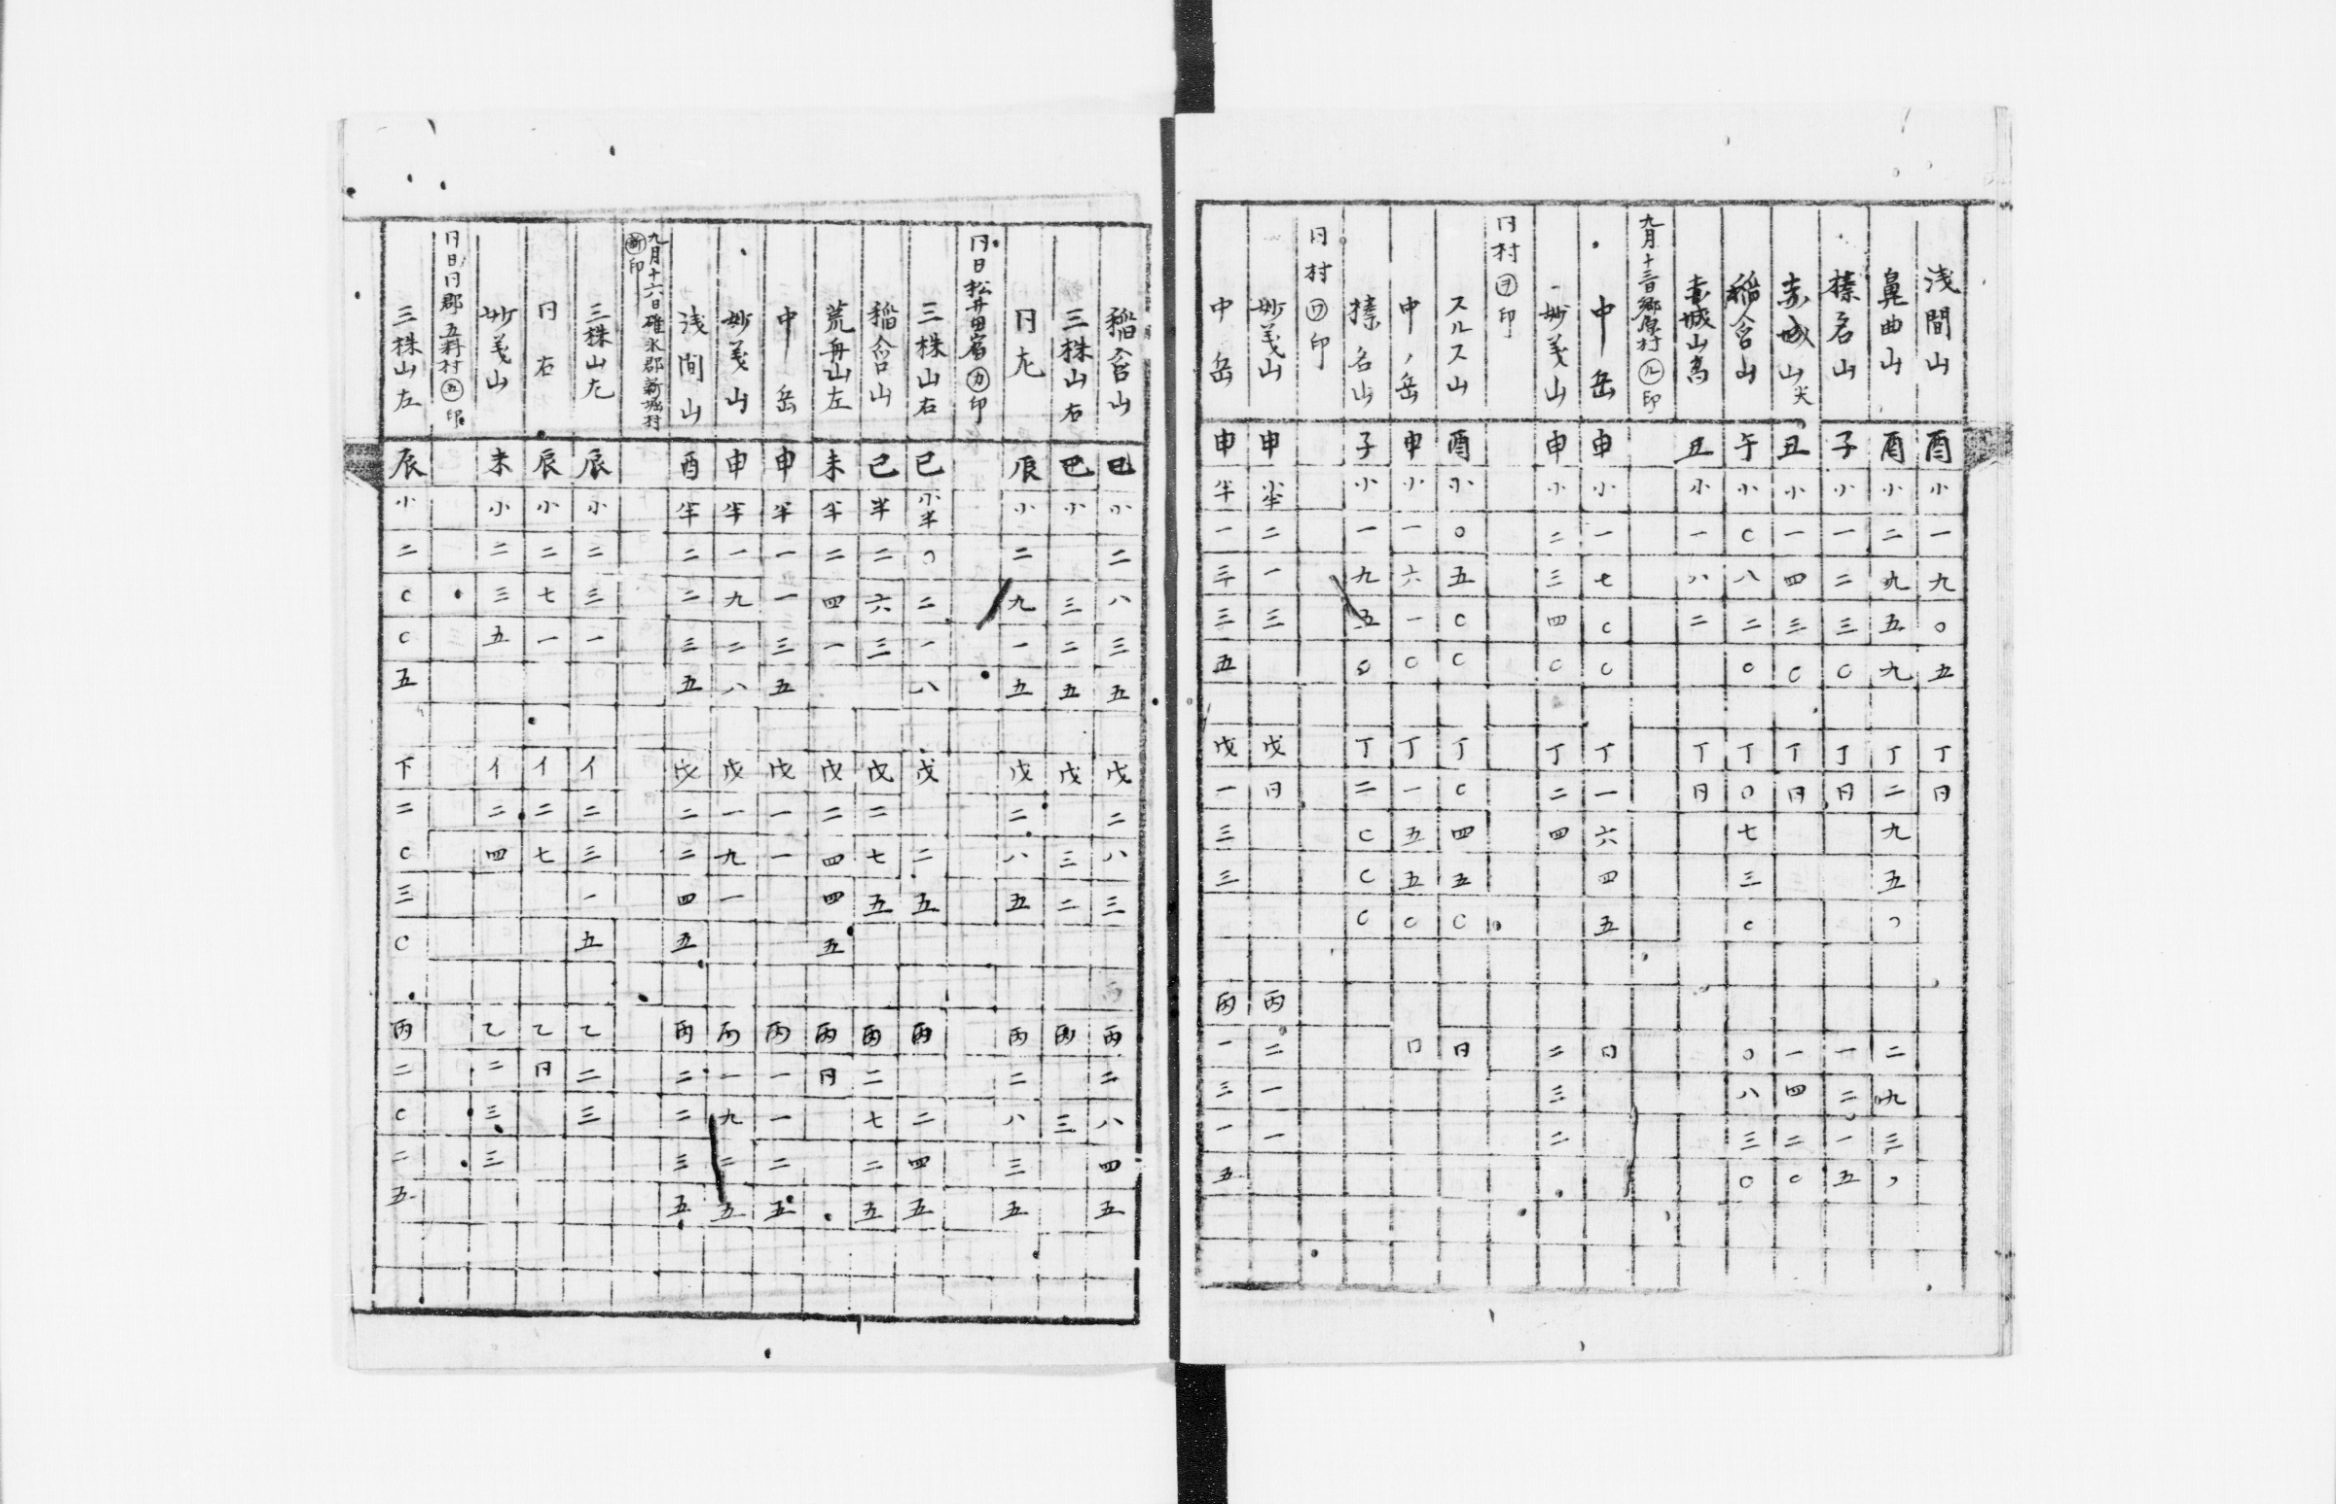 浅間山 酉 小 一 九 〇 五 丁 円
鼻曲山 酉 小 二 九 五 九 丁 二 九 五 〇 二 九 三 〇
榛名山 子 小 一 二 三 〇 丁 円 一 二 一 五
赤城山 尖 丑 小 一 四 三 〇 丁 円 一 四 二 〇
稲含山 午 小 〇 八 二 〇 丁 〇 七 三 〇 〇 八 三 〇
赤城山高 丑 小 一 八 二 丁 円
九月十三日郷原村 ㋸印
中岳 申 小 一 七 〇 〇 丁 一 六 四 五 円
妙義山 申 小 二 三 四 〇 丁 二 四 二 三 二
円村 ㋾印
スルス山 酉 小 〇 五 〇 〇 丁 〇 四 五 〇 円
中ノ岳 申 小 一 六 一 〇 丁 一 五 五 〇 円
榛名山 子 小 一 九 五 〇 丁 二 〇 〇 〇
円村 ㋻印
妙義山 申 小半 二 一 三 戊 円 丙 二 一 一
中岳 申 半 一 三 三 五 戊 一 三 三 丙 一 三 一 五
稲含山 巳 小 二 八 三 五 戊 二 八 三 丙 二 八 四 五
三株山右 巳 小 三 二 五 戊 三 二 丙 三
円左 辰 小 二 九 一 五 戊 二 八 五 丙 二 八 三 五
円日松井田宿 ㋕印
三株山右 巳 小半 〇 二 一 八 戊 二 五 丙 二 四 五
稲含山 巳 半 二 六 三 戊 二 七 五 丙 二 七 二 五
荒舟山左 未 半 二 四 一 戊 二 四 四 五 丙 円
中岳 申 半 一 一 三 五 戊 一 一 丙 一 一 二 五
妙義山 申 半 一 九 二 八 戊 一 九 一 丙 一 九 二 五
浅間山 酉 半 二 二 三 五 戊 二 二 四 五 丙 二 二 三 五
九月十六日碓氷郡新堀村
新印
三株山左 辰 小 二 三 一 イ 二 三 一 五 乙 二 三
円右 辰 小 二 七 一 イ 二 七 乙 円
妙義山 未 小 二 三 五 イ 二 四 乙 二 三 三
円日円郡五料村 ㊄印
三株山左 辰 小 二 〇 〇 五 下 二 〇 三 〇 丙 二 〇 二 五